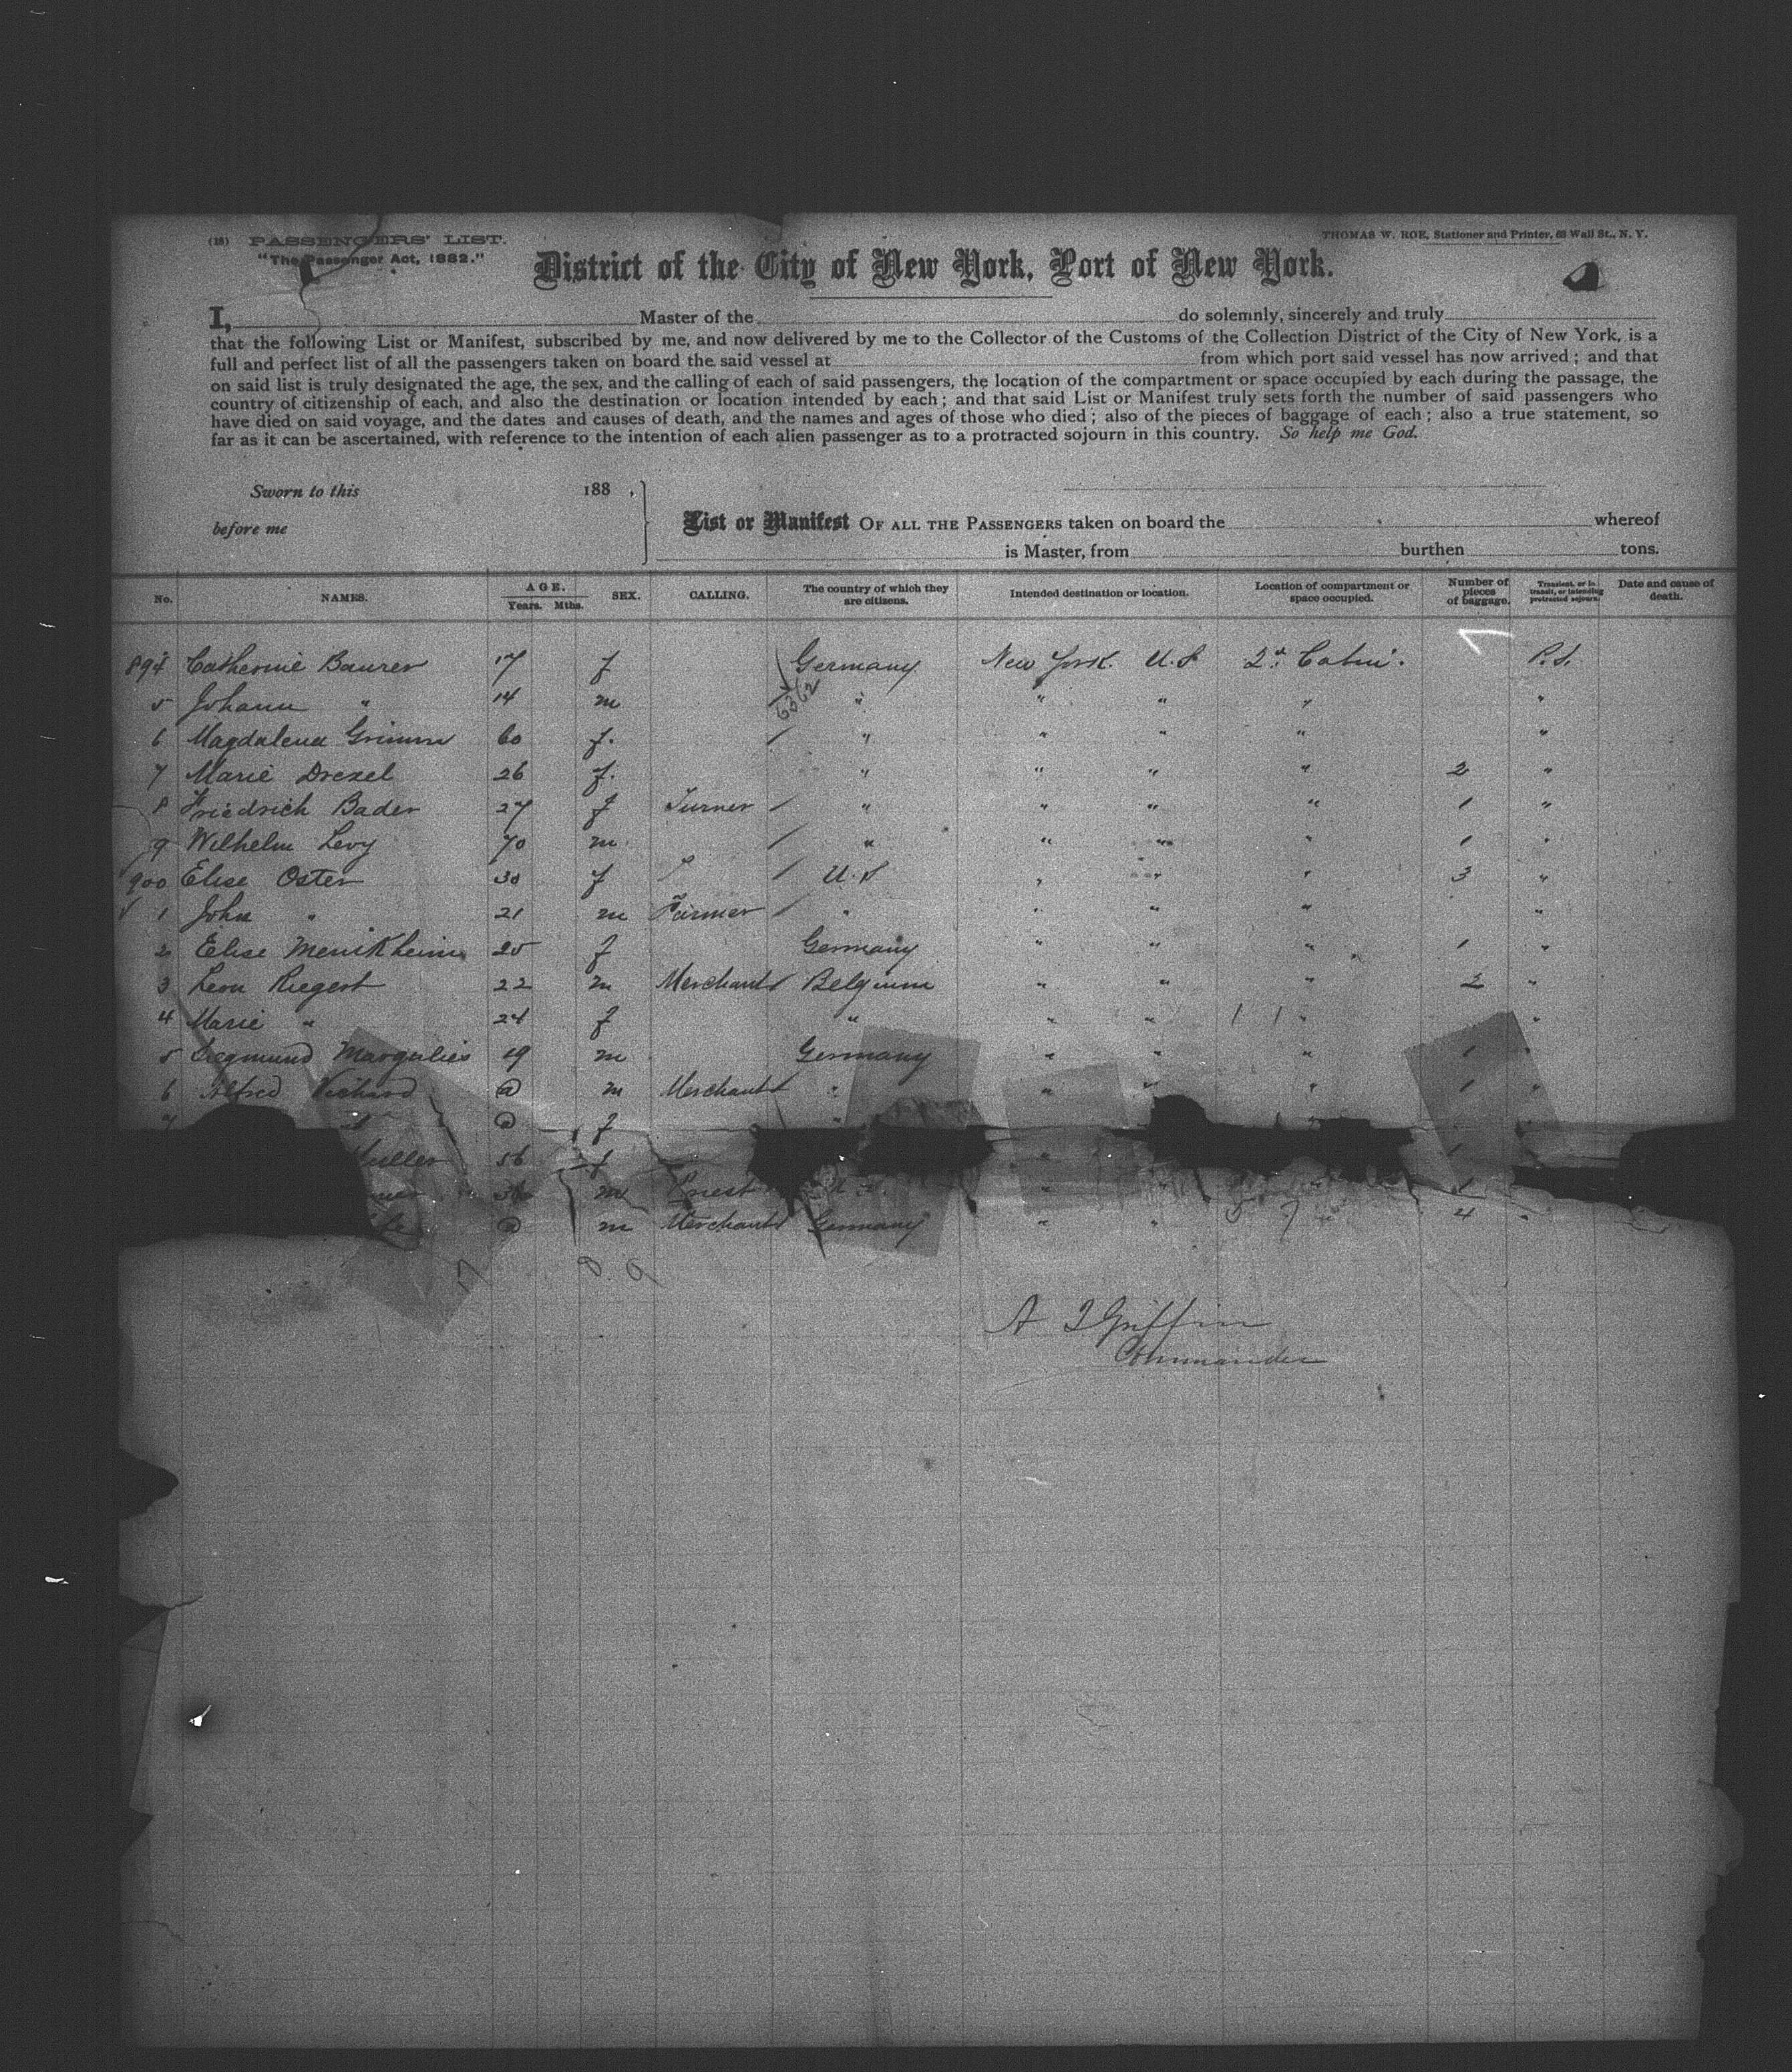 (18) PASSENGERS' LIST.
"The Passenger Act, 1882."
THOMAS W. ROE, Stationer and Printer, 63 Wall St., N. Y.
District of the City of New York, Port of New York.
I, Master of the do solemnly, sincerely and truly
that the following List or Manifest, subscribed by me, and now delivered by me to the Collector of the Customs of the Collection District of the City of New York, is a
full and perfect list of all the passengers taken on board the said vessel at from which port said vessel has now arrived; and that
on said list is truly designated the age, the sex, and the calling of each of said passengers, the location of the compartment or space occupied by each during the passage, the
country of citizenship of each, and also the destination or location intended by each; and that said List or Manifest truly sets forth the number of said passengers who
have died on said voyage, and the dates and causes of death, and the names and ages of those who died; also of the pieces of baggage of each; also a true statement, so
far as it can be ascertained, with reference to the intention of each alien passenger as to a protracted sojourn in this country. So help me God.
Sworn to this 188 ,
before me
List or Manifest OF ALL THE PASSENGERS taken on board the whereof
is Master, from burthen tons.
No. NAMES. AGE. Years. Mths. SEX. CALLING. The country of which they are citizens. Intended destination or location. Location of compartment or space occupied. Number of pieces of baggage. Transient, or in transit, or intending protracted sojourn. Date and cause of death.
894 Catherine Baurer 17 f Germany New York. U.S 2d. Cabin. P.S.
5 Johann " 14 m " " " " "
6 Magdalena Grimm 60 f. " " " " "
7 Marie Drexel 26 f. " " " " 2 "
8 Friedrich Bader 27 f Turner " " " " 1 "
9 Wilhelm Levy 70 m " " " " 1 "
900 Elise Oster 30 f U.S " " " 3 "
1 John " 21 m Farmer " " " " "
2 Elise Menikheim 25 f Germany " " " 1 "
3 Leon Riegert 22 m Merchant Belgium " " " 2 "
4 Marie " 24 f " " " " "
5 Siegmund Margulies 19 m Germany " " " 1 "
6 Alfred Vichard @ m Merchant " " " " 1 "
7 " @ f "
uller 56 f " 1
m Priest " " 1
@ m Merchant Germany " " " 4 "
A J Griffin
Commander